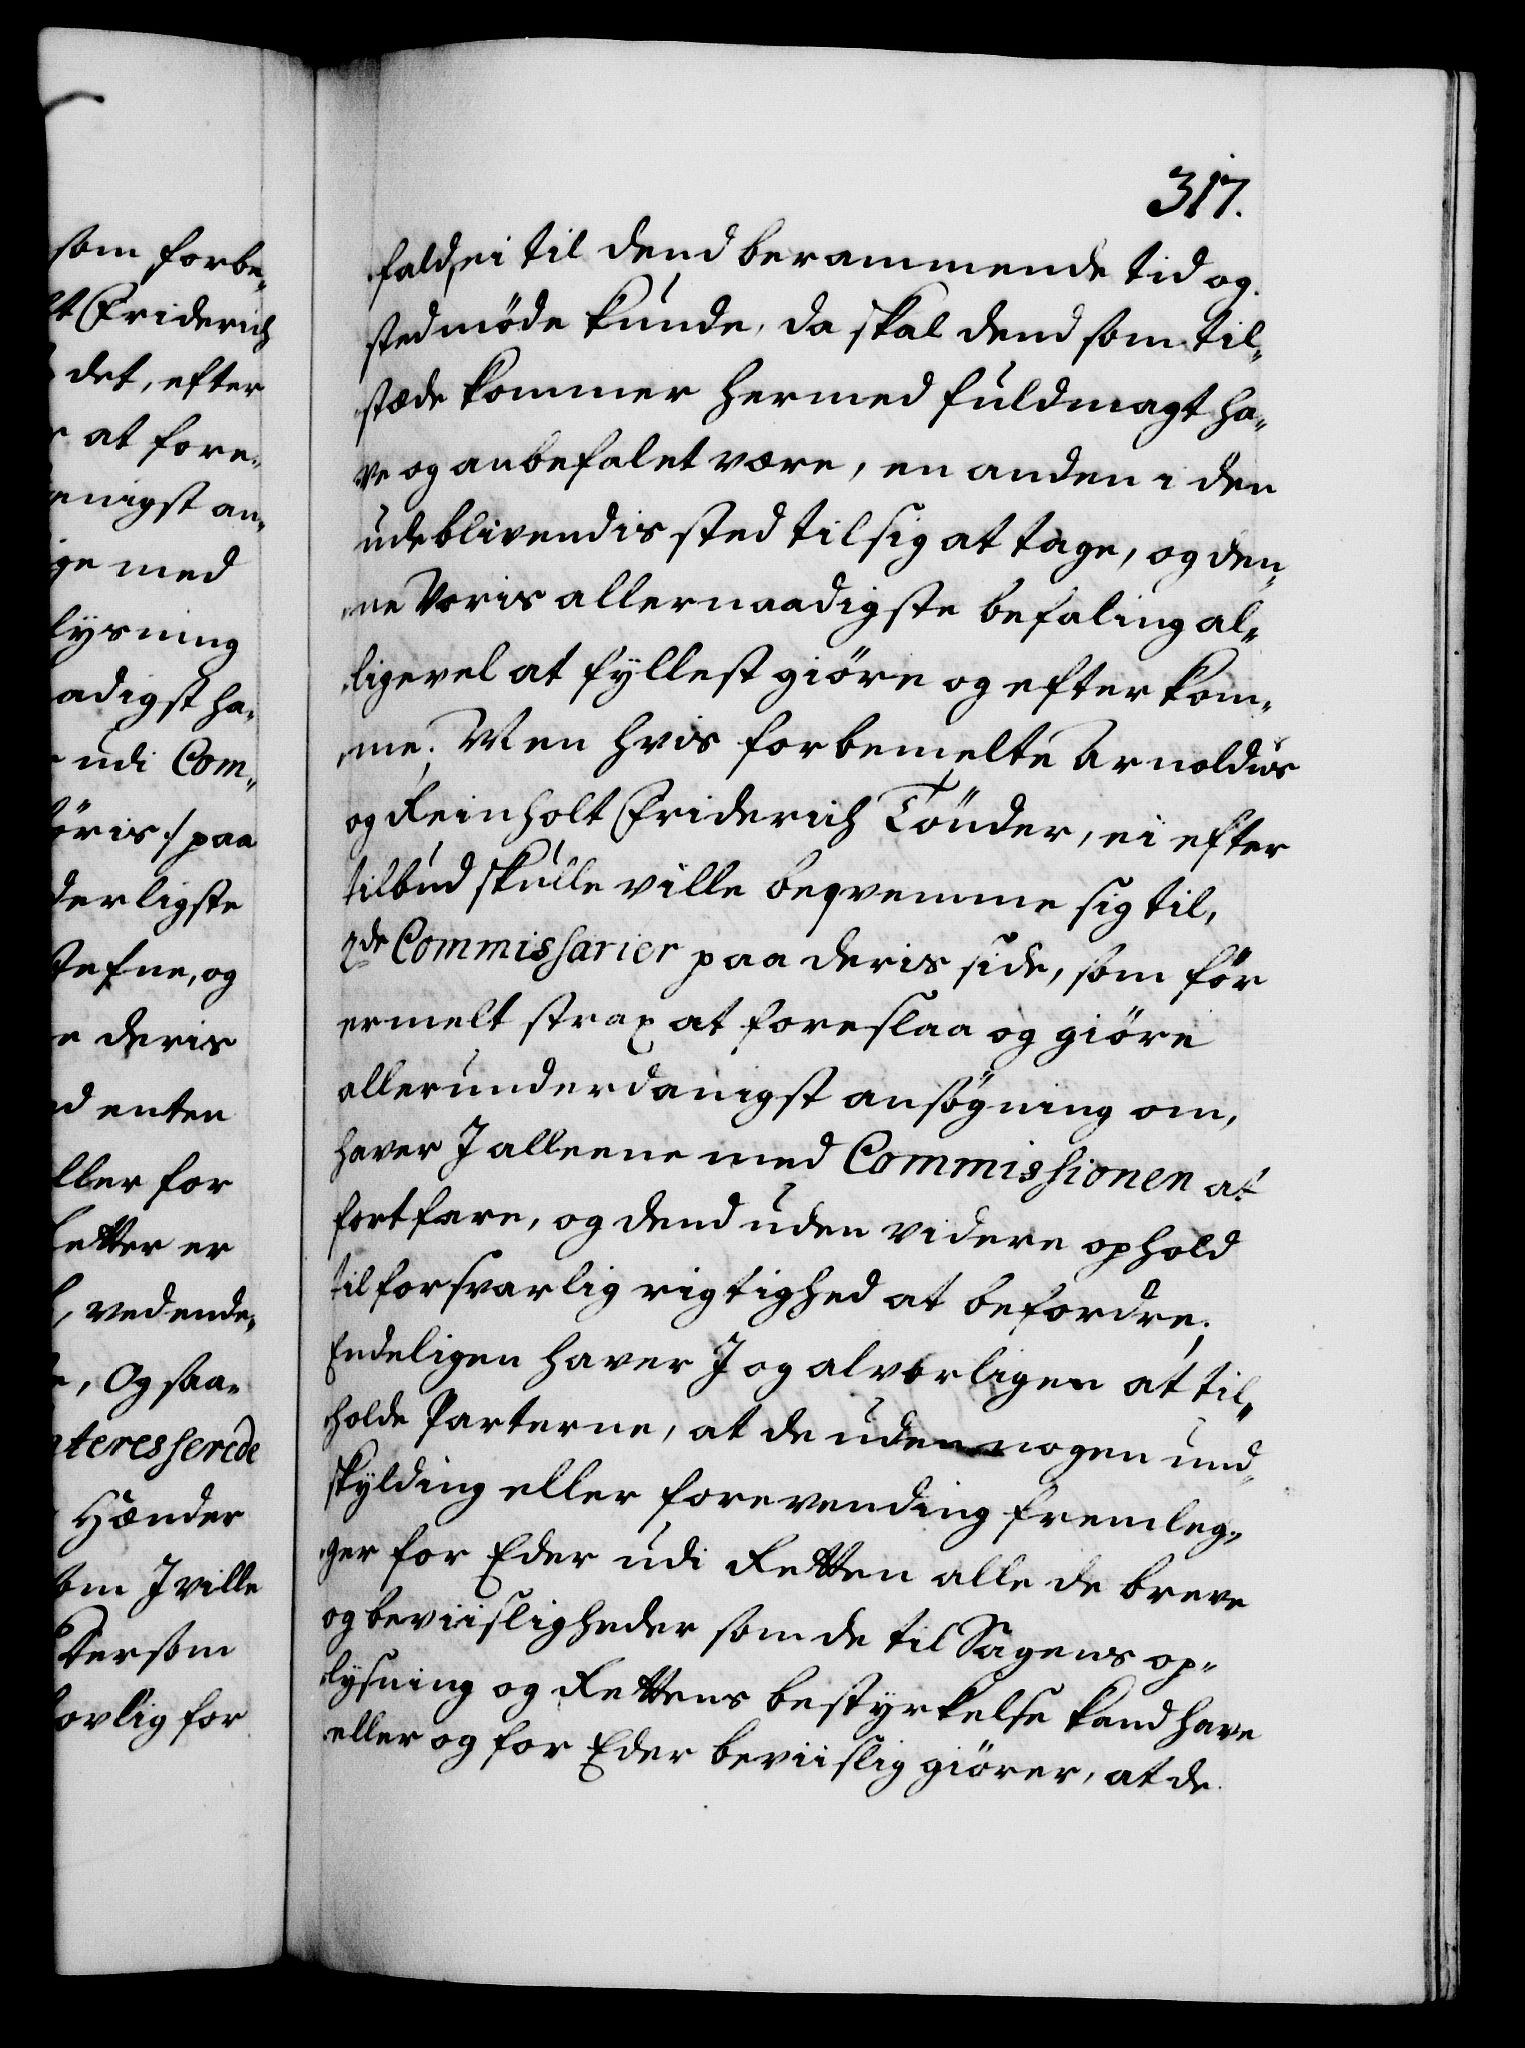 som forbe-
lt Friderich
det, efter
at fore-
enigst an-
ge med
lysning
adigst ha-
udi Com-
öris :/ paa
derligste
Stefne, og
e deris
ed enten
ller for
Retter er
, vedende-
, Og saa-
nteresserede
Hænder
om I ville
dersom
lovlig for
317.
fald, ei til dend berammende tid og
sted møde kunde, da skal dend som til-
stæde kommer hermed fuldmagt ha-
ve og anbefalet være, en anden i den
udeblivendis sted til sig at tage, og den-
ne Voris allernaadigste befaling al-
ligevel at fyllest giöre og efterkom-
me; Men hvis forbemelte Arnoldus
og Reinholt Friderich Tönder, ei efter
tilbud skulle ville beqvemme sig til,
2de Commissarier paa deris side, som för
ermelt strax at foreslaa og giöre
allerunderdanigst ansøgning om,
haver I alleene med Commissionen at
fortfare, og dend uden videre ophold
til forsvarlig rigtighed at befordre;
Endeligen haver I og alvorligen at til-
holde Parterne, at de uden nogen und-
skylding eller forevending fremleg-
ger for Eder udi Retten alle de breve
og beviisligheder som de til Sagens op-
lysning og Rettens bestyrkelse kand have
eller og for Eder beviislig giörer, at de